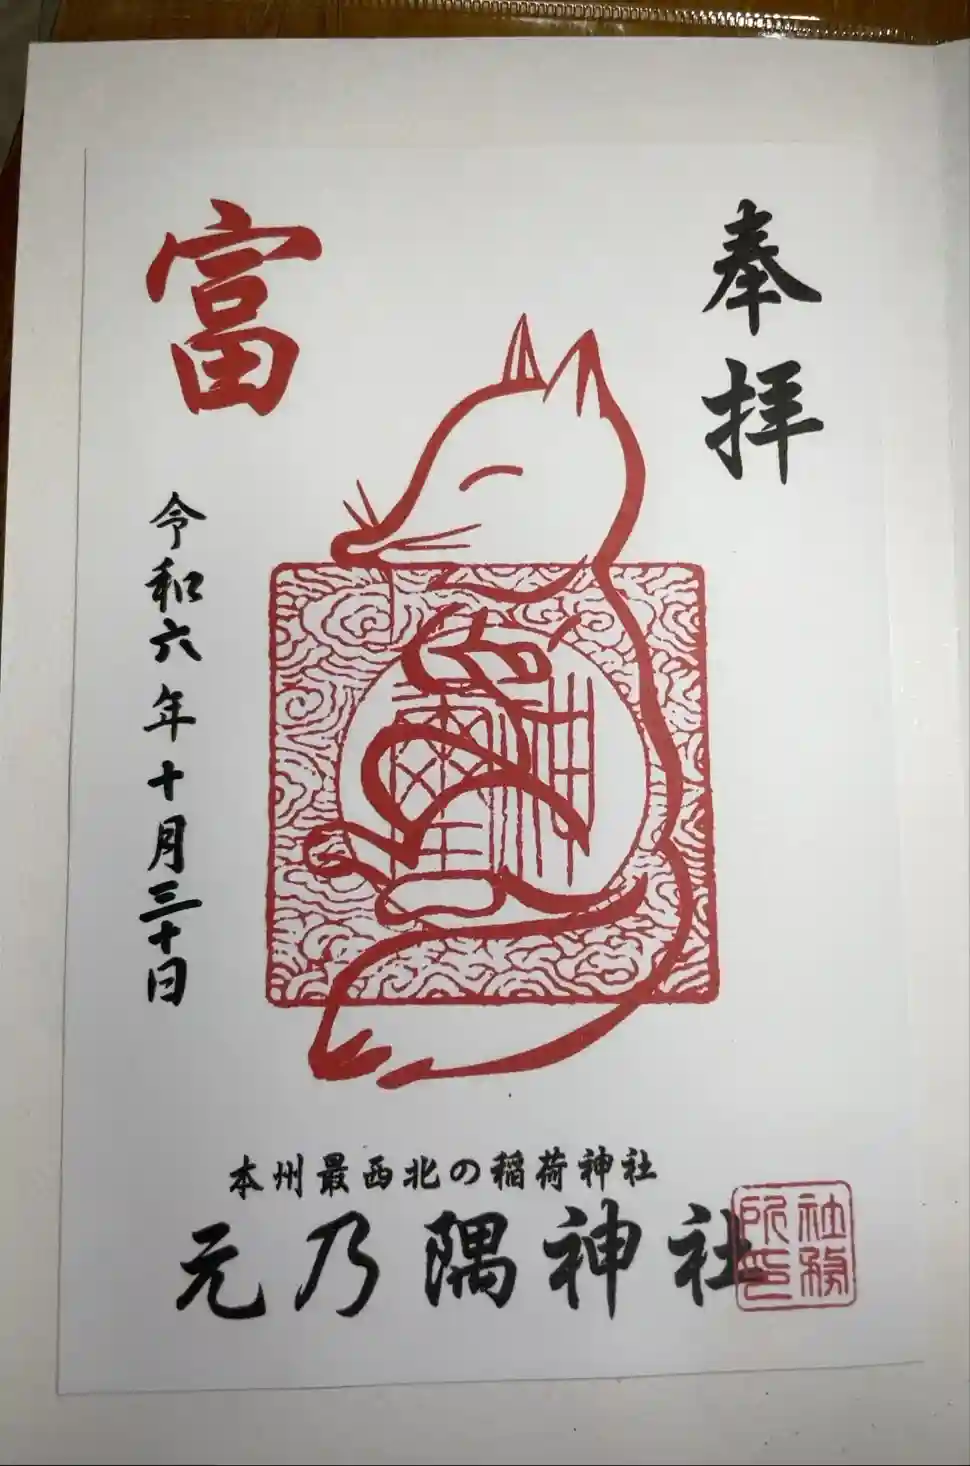 奉拝
富
令和六年十月三十日
本州最西北の稲荷神社
元乃隅神社
社務所印